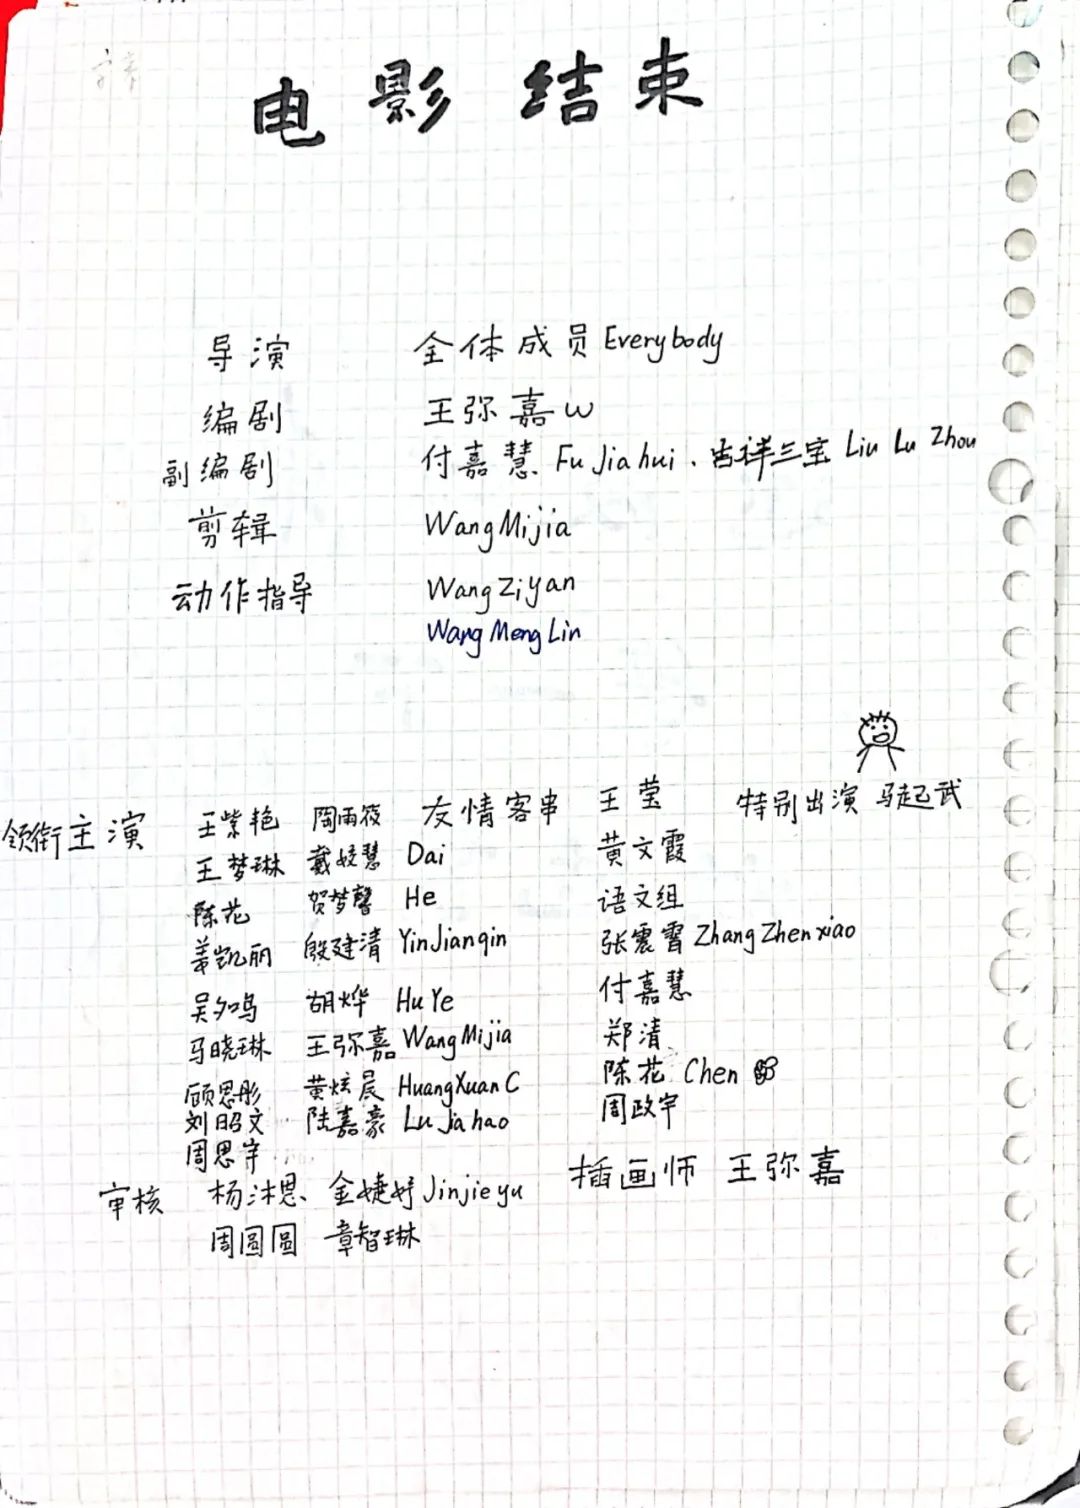 电影 结束
导演 全体成员 Everybody
编剧 王弥嘉 w
副编剧 付嘉慧 Fu Jiahui、吉祥三宝 Liu Lu Zhou
剪辑 WangMijia
动作指导 WangZiyan
Wang Meng Lin
领衔主演 王紫艳 陶雨筱 友情客串 王莹 特别出演 马起武
王梦琳 戴姣慧 Dai 黄文霞
陈花 贺梦馨 He 语文组
姜凯丽 殷建清 YinJianqin 张震霄 ZhangZhenxiao
吴夕鸣 胡烨 HuYe 付嘉慧
马晓琳 王弥嘉 WangMijia 郑清
顾思彤 黄炫晨 HuangXuanC 陈花 Chen
刘昭文 陆嘉豪 LuJiahao 周政宇
周思宇
审核 杨沐恩 金婕妤 Jinjieyu 插画师 王弥嘉
周圆圆 章智琳